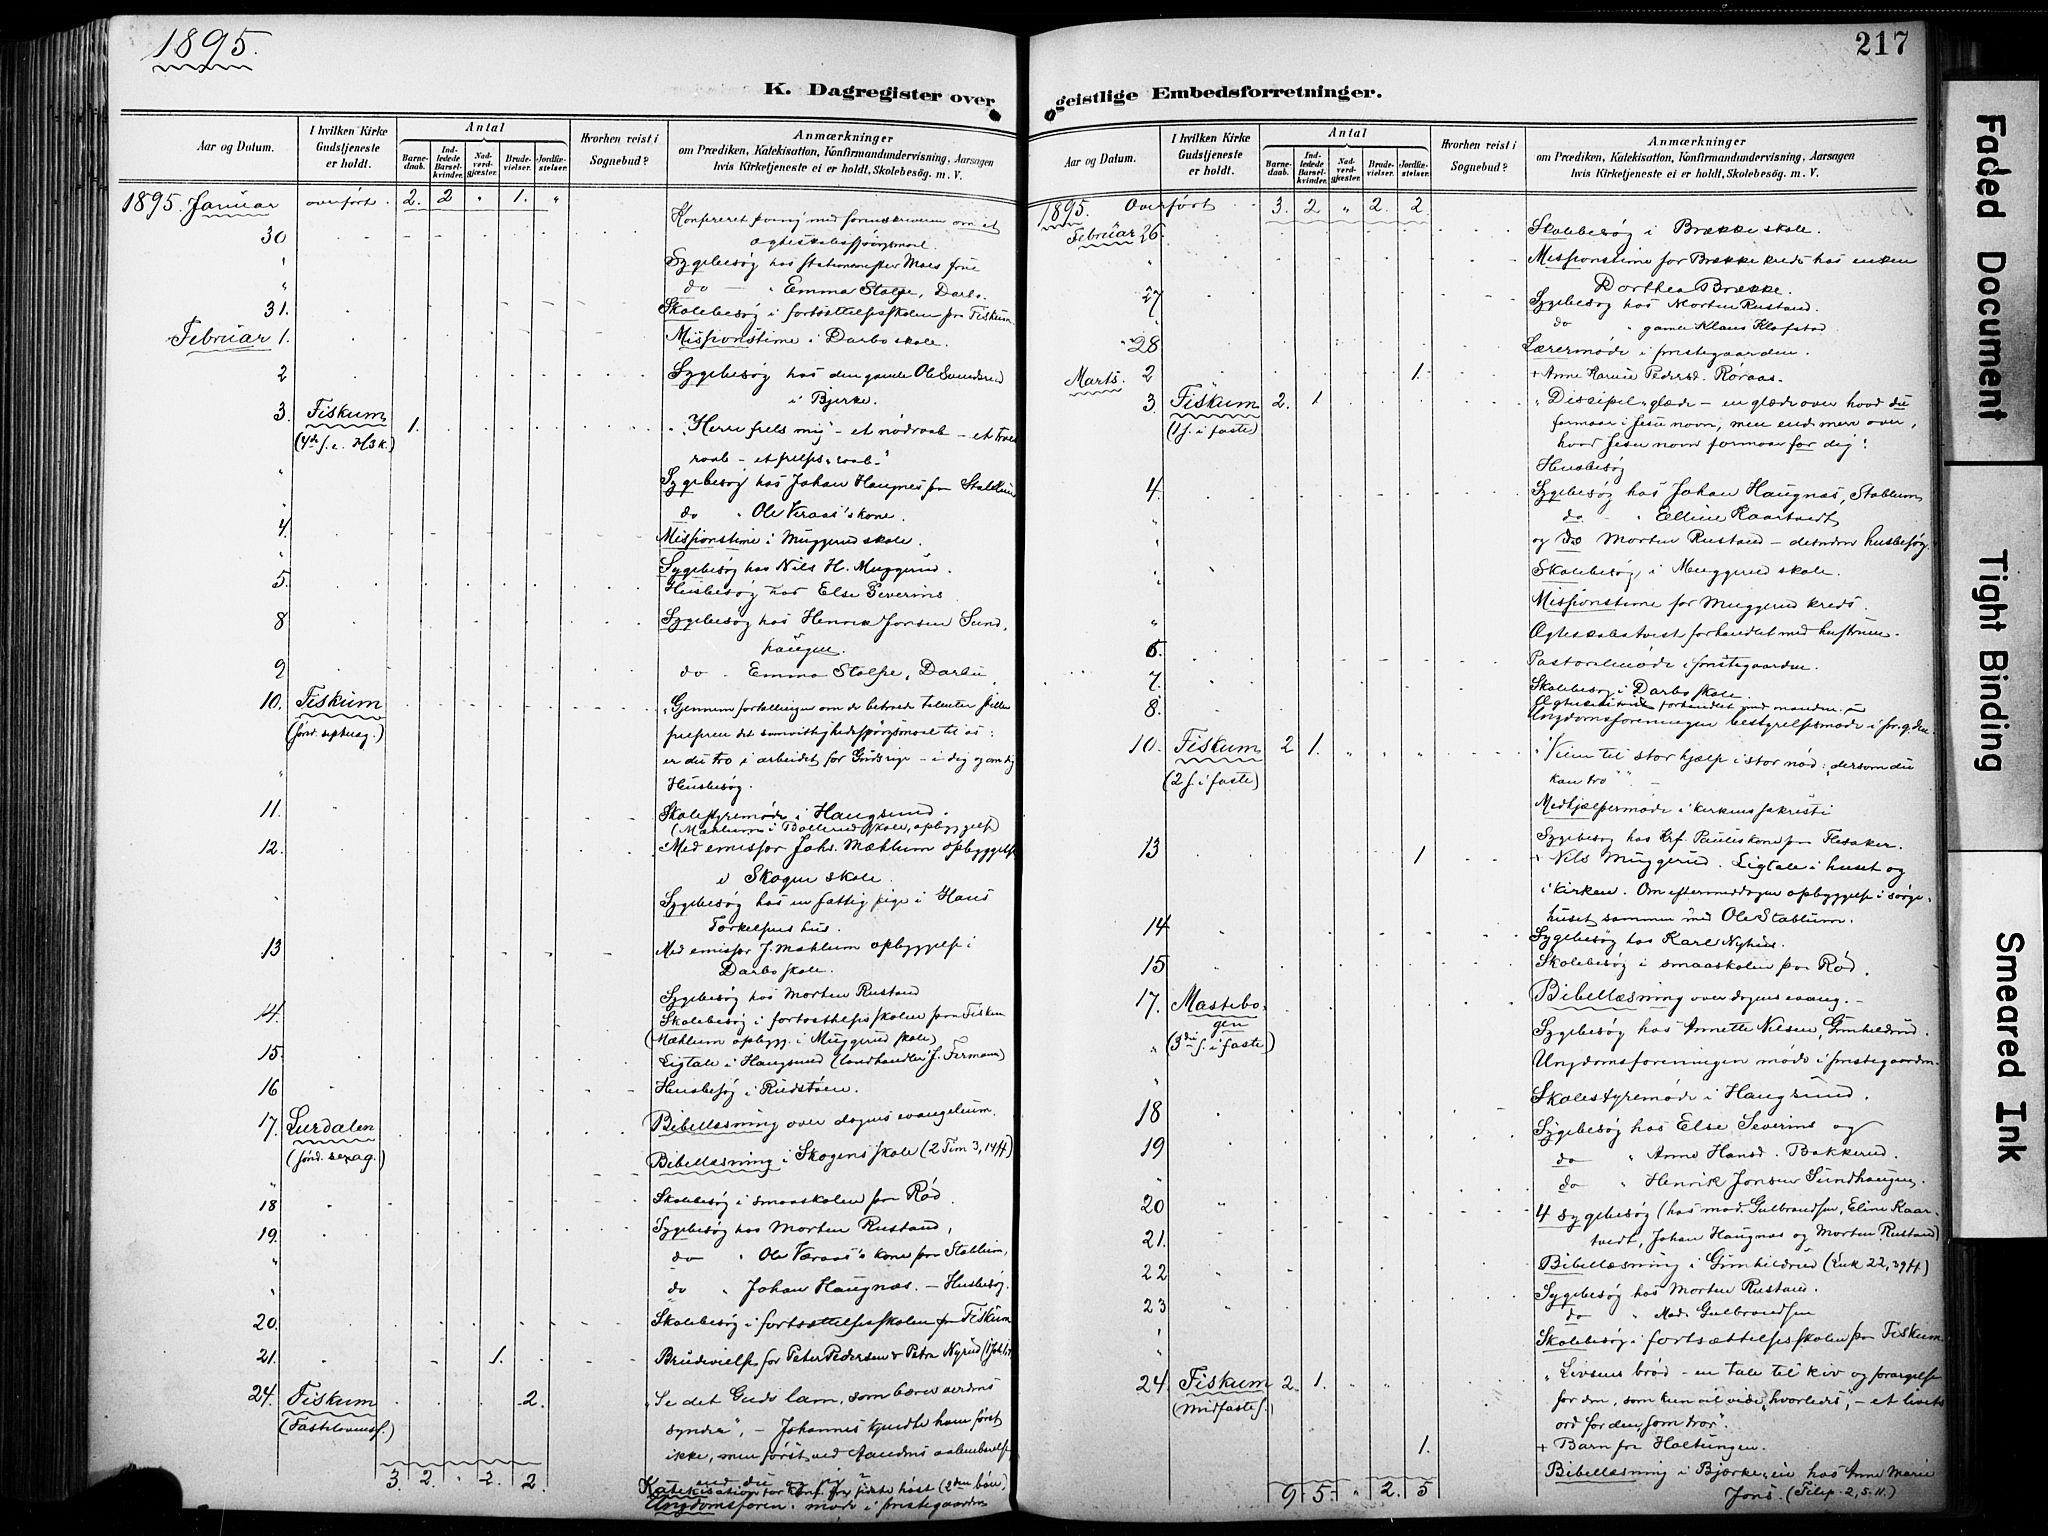 1895.
217
K. Dagregister over geistlige Embedsforretninger.
Aar og Datum.
I hvilken Kirke Gudstjeneste er holdt.
Antal
Barnedaab.
Indledede Barselkvinder.
Nadverdgjæster.
Brudevielser.
Jordfæstelser.
Hvorhen reist i Sognebud?
Anmærkninger
om Prædiken, Katekisation, Konfirmandundervisning, Aarsagen
hvis Kirketjeneste ei er holdt, Skolebesøg. m. V.
1895. Januar overført . 2. 2 " 1. "
30 Konfereret med om et
ægteskabsspørgsmaal.
" Sygebesøg hos stationsmester Moes frue
" do " Emma Stolpe, Darbo.
31. Skolebesøg i fortsættelsesskolen paa Fiskum.
Februar 1. Missionstime i Darbo skole.
2 Sygebesøg hos den gamle Ole Svendsrud
i Bjerke.
3. Fiskum 1. "Herre frels mig" - et nødraab - et troes
(4de s. e. H3K.) raab - et frelses raab."
" Sygebesøg hos Johan Haugnes paa Stablum
" do " Ole Veraas' kone.
4. Missionstime i Muggerud skole.
" Sygebesøg hos Nils H. Muggerud.
5. Husbesøg hos Else Severins
8 Sygebesøg hos Henrik Jonsen Sund,
haugen.
9 do . Emma Stolpe, Darbu
10. Fiskum "Gjennem fortællingen om de betroede talenter stiller
(sønd. septuag.) det samvittighedsspørgsmaal til os:
er du tro i arbeidet for Guds rige - i dig og om dig
" Husbesøg.
11. Skolestyremøde i Haugsund.
(Mæhlum i Bollerud skole, opbyggelse)
12. Med emissær Johs. Mæhlum opbyggelse
i Skogen skole.
" Sygebesøg hos en fattig pige i Hans
Torkelsens hus.
13 Med emissær J. Mæhlum opbyggelse i
Darbo skole.
Sygebesøg hos Morten Rustand
14. Skolebesøg i fortsættelsesskolen paa Fiskum
(Mæhlum opbygg. i Muggerud skole)
15. Ligtale i Haugsund (landhandler J. Fermann)
16 Husbesøg i Rudstøen.
17. Surdalen Bibellæsning over dagens evangelium.
(sønd. sexag.) Bibellæsning i Skogens skole (2 Tim 3, 14 ff)
"
18 Skolebesøg i smaaskolen paa Rød.
19. Sygebesøg hos Morten Rustand,
" do " Ole Væraas's kone paa Stablum,
" do " Johan Haugnæs. - Husbesøg.
20. Skolebesøg i fortsættelsesskolen paa Fiskum
21. 1. Brudevielse for Peter Pedersen & Petra Nyrud
24. Fiskum 2. "Se det Guds lam, som bærer verdens
(Fastelavnss.) synder", - Johannes kjendte ham først
ikke, men først ved Aandens aabenbarelse,
3. 2 " 2. 2.
Katekisation for konf. fra sidste høst (2den bøn)
Ungdomsforen. møde i præstegaarden
Aar og Datum.
I hvilken Kirke Gudstjeneste er holdt.
Antal
Barnedaab.
Indledede Barselkvinder.
Nadverdgjæster.
Brudevielser.
Jordfæstelser.
Hvorhen reist i Sognebud?
Anmærkninger
om Prædiken, Katekisation, Konfirmandundervisning, Aarsagen
hvis Kirketjeneste ei er holdt, Skolebesøg. m. V.
1895. Overført . . 3. 2 " 2. 2.
Februar 26. Skolebesøg i Brække skole.
" Missionstime for Brække kreds hos enken
Dorthea Brække.
27 Sygebesøg hos Morten Rustand.
" do " gamle Klaus Klofstad.
"28 Lærermøde i præstegaarden.
Marts. 2 1. + Anne Karine Pedersd. Røraas.
3 Fiskum 2. 1. "Discipel"glæde - en glæde over hvad du
(1 s. i faste) formaar i Jesu navn, men end mere over,
hvad Jesu navn formaar for dig!
Husbesøg
4. Sygebesøg hos Johan Haugnæs, Stablum
" do " Elline Kaartvedt
" og do Morten Rustand - desuden husbesøg.
" Skolebesøg i Muggerud skole.
Missionstime for Muggerud kreds.
" Ægteskabstvist forhandlet med hustruen.
6. Pastoralmøde i præstegaarden.
7. Skolebesøg i Darbo skole.
Ægteskabstvist forhandlet med manden.
8. Ungdomsforeningen bestyrelsesmøde i
10. Fiskum 2 1. " " " "Veien til stor hjælp i stor nød: "dersom du
(2 s. i faste) kan tro""
Medhjælpermøde i kirkens sakristi
Sygebesøg hos Krf. Paulis kone paa Flesaker.
13 1 + Nils Muggerud. Ligtale i huset og
i kirken. Om eftermiddagen opbyggelse i sørge,
huset sammen med Ole Stablum.
14 Sygebesøg hos Karl Nyhus.
15 Skolebesøg i smaaskolen paa Rød.
17. Mastebo- Bibellæsning over dagens evang. -
gen Sygebesøg hos Annette Nilsen, Gunhildrud.
" (3die s. i faste) Ungdomsforeningen møde i præstegaarden.
"
18 Skolestyremøde i Haugsund.
19 Sygebesøg hos Else Severins og
do " Anne Hansd. Bakkerud.
" do " Henrik Jonsen Sundhaugen.
20 4 sygebesøg (hos mad. Gulbrandsen, Eline Kaar-
21. tvedt, Johan Haugnæs og Morten Rustand)
22 Bibellæsning i Gunhildrud (Luk 22, 39 ff)
23 Sygebesøg hos Morten Rustand.
do " Mad. Gulbrandsen
" Skolebesøg i fortsættelsesskolen paa Fiskum.
24. Fiskum 2. 1. " " "Livsens brød - en tale til kiv og forargelse
(Midfastes.) for den, som kun vil vide "hvorledes", - et livets
ord for den, som tror".
1. + Barn fra Holtungen.
9 5. " 2. 5 Bibellæsning i Bjerke, hos Anne Marie
Jons. (Filip. 2, 5-11.)
Faded Document
Tight Binding
Smeared Ink